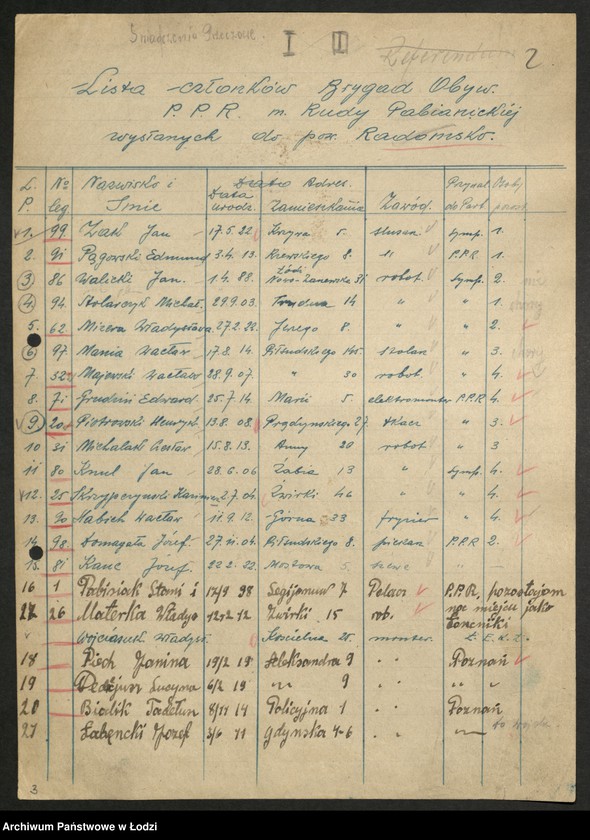 I II Referendum 2
Lista członków Brygad Obyw.
P.P.R. m. Rudy Pabianickiej
wysłanych do pow. Radomsko.
L. P. № leg Nazwisko i Imie Data urodz. Adres. Zamieszkania Zawód. Przynal. do Part Osoby
1. 99 Żak Jan 17.5.22 5. symp. 1.
2. 91 Edmund 3.4.13. 8 " P.P.R. 1
3 86 Walicki Jan. 1.4.88. Łódź 31 robot. symp. 2.
4. 94 Stolarczyk Michał. 29.9.03. 14 " " 1.
5. 62 Micera Władysława 27.2.22. 8 " " 2.
6 97 Mania Wacław 17.8.14 Piłsudskiego 145. " 3.
7 52 Majewski Wacław 28.9.07. " 30 robot. " 4.
8. 71 Edward 25.7.14 Marii 5 elektromonter P.P.R. 4.
9 20 Piotrowski Henryk 13.8.08. Prądzyńskiego 27. tkacz " 3.
10 31 Michalak Czesław 15.8.13. Anny 20 robot " 3
11 80 Knul Jan 28.6.06 Żabia 13 " symp. 4.
12. 25 Skrzypczyński 2.7.04. Żwirki 46 " " 4.
13. 90 Nabich Wacław 11.9.12. Górna 33 fryzjer " 4.
14. 98. Domagała Józef. 27.11.04. Piłsudskiego 8. piekarz P.P.R. 2.
15. 81 Józef 22.2.22. 5. " —
16 1 Pabiniak 98 Legijonuw 7 P.P.R. pozostajom
17 26 Materka Władys 12 12 Żwirki 15 rob. na miejscu jako
Łonćniki
Wojciasuk Władys. Kościelna 25. monter. Ł.E.Ł.Z.
18 Piech Janina 19/2 19 Aleksandra 9 " Poznań
19 Lucyna 6/2 19 " 9 " " "
20 Bialik Tadeusz 8/11 14 Policyjna 1 " Poznań
21 Łabęncki Józef 3/6 11 gdynska 46 " "
3
Archiwum Państwowe w Łodzi